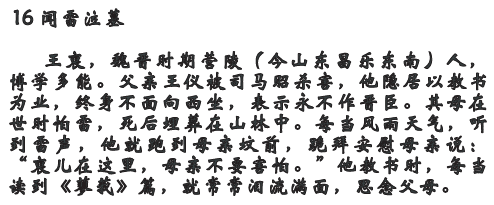 16 闻雷泣墓
王裒，魏晋时期营陵（今山东昌乐东南）人，
博学多能。父亲王仪被司马昭杀害，他隐居以教书
为业，终身不面向西坐，表示永不作晋臣。其母在
世时怕雷，死后埋葬在山林中。每当风雨天气，听
到雷声，他就跑到母亲坟前，跪拜安慰母亲说：
“裒儿在这里，母亲不要害怕。”他教书时，每当
读到《蓼莪》篇，就常常泪流满面，思念父母。